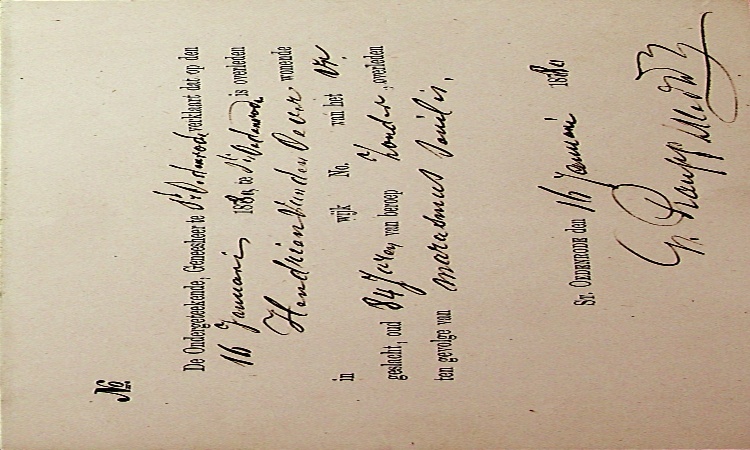 No.
De Ondergeteekende, Geneesheer te verklaart dat op den
16 Januari 188 , te is overleden
Hendrien van den Oever wonende
in wijk No. van het vr.
geslacht, oud 84 Jaren van beroep zonder , overleden
ten gevolge van marasmus senilis.
St. OEDENRODE den 16 Januari 188